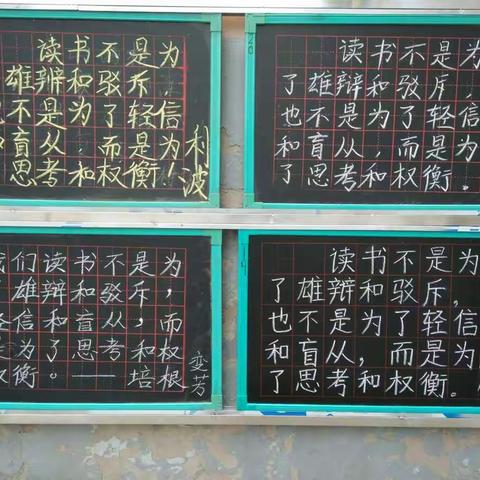 读书不是为
雄辩和驳斥，
也不是为了轻信
和盲从，而是为
思考和权衡！
利波
读书不是为
了雄辩和驳斥，
也不是为了轻信
和盲从，而是为
了思考和权衡。
我们读书不是为
雄辩和驳斥，
轻信和盲从，而
是为了思考和权
权衡。——培根
变芳
读书不是为
了雄辩和驳斥，
也不是为了轻信
和盲从，而是为
了思考和权衡。